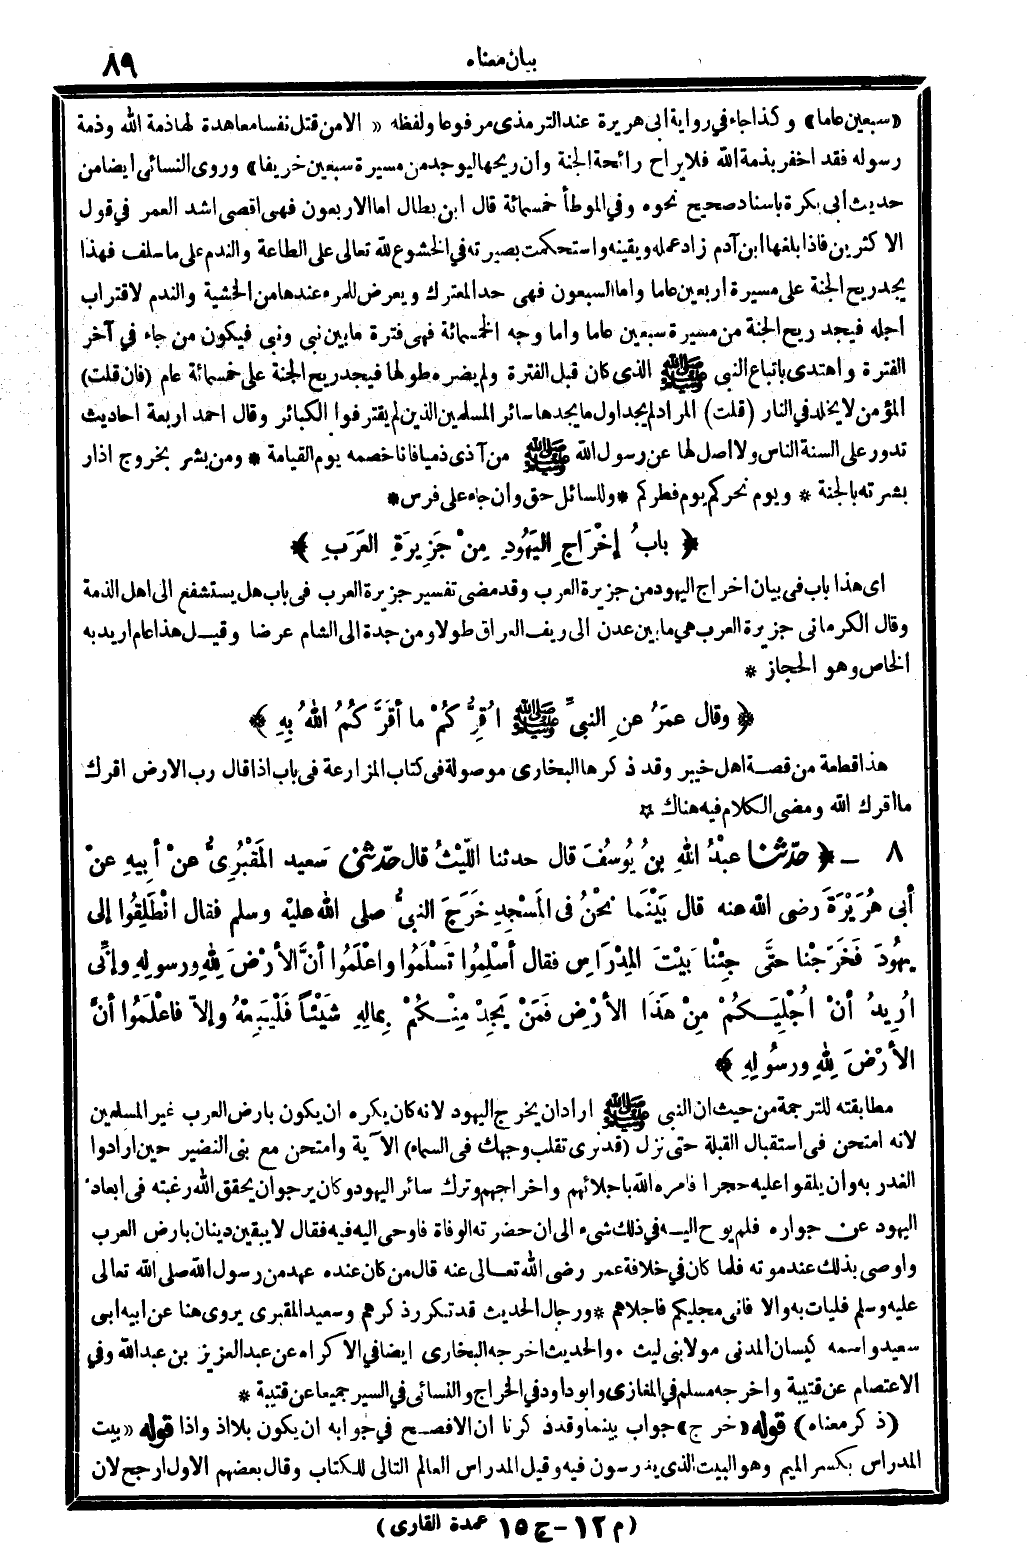 بيان معناه ٨٩
«سبعين عاما» وكذا جاء في رواية ابى هريرة عند الترمذى مرفوعا ولفظه «الا من قتل نفسا معاهدة لها ذمة الله وذمة
رسوله فقد اخفر بذمة الله فلا يراح رائحة الجنة وان ريحها ليوجد من مسيرة سبعين خريفا» وروى النسائى ايضا من
حديث أبى بكرة باسناد صحيح نحوه وفي الموطأ خمسمائة قال ابن بطال اما الاربعون فهى اقصى اشد العمر في قول
الاكثرين فاذا بلغها ابن آدم زاد عمله ويقينه واستحكمت بصيرته في الخشوع لله تعالى على الطاعة والندم على ما سلف فهذا
يجد ريح الجنة على مسيرة اربعين عاما واما السبعون فهى حد المعترك ويعرض للمرء عندها من الخشية والندم لاقتراب
أجله فيجد ريح الجنة من مسيرة سبعين عاما وأما وجه الخمسمائة فهى فترة ما بين نبى ونبى فيكون من جاء في آخر
الفترة واهتدى باتباع النبى ﷺ الذى كان قبل الفترة ولم يضره طولها فيجد ريح الجنة على خمسمائة عام (فان قلت)
المؤمن لا يخلد في النار (قلت) المراد لم يجد اول ما يجدها سائر المسلمين الذين لم يقترفوا الكبائر وقال احمد اربعة احاديث
تدور على السنة الناس ولا اصل لها عن رسول الله ﷺ من آذى ذميا فانا خصمه يوم القيامة * ومن بشر بخروج اذار
بشرته بالجنة * ويوم نحركم يوم فطركم * وللسائل حق وان جاء على فرس *
﴿ بابُ إخْرَاجِ اليَهُودِ مِنْ جَزِيرَةِ العَرَبِ ﴾
اى هذا باب فى بيان اخراج اليهود من جزيرة العرب وقد مضى تفسير جزيرة العرب فى باب هل يستشفع الى اهل الذمة
وقال الكرمانى جزيرة العرب هي ما بين عدن الى ريف العراق طولا ومن جدة الى الشام عرضا وقيل هذا عام اريد به
الخاص وهو الحجاز *
﴿ وقال عمَرُ عنِ النبيِّ ﷺ اُقِرُّكُمْ ما أقَرَّكُمُ اللهُ بِهِ ﴾
هذا قطعة من قصة اهل خيبر وقد ذكرها البخارى موصولة فى كتاب المزارعة فى باب اذا قال رب الارض اقرك
ما اقرك الله ومضى الكلام فيه هناك ☆
٨ - ﴿ حدّثنا عبْدُ اللهِ بنُ يُوسُفَ قال حدثنا اللّيْثُ قال حدّثنى سَعيد المَقْبُرِىُّ عنْ أبِيهِ عنْ
أبى هُرَيْرَةَ رضى الله عنه قال بَيْنَما نحْنُ فى المَسْجِدِ خَرَجَ النبيُّ صلى الله عليْه وسلم فقال انْطَلِقُوا إلى
يهُودَ فَخَرَجْنا حتَّى جِئْنا بَيْتَ المِدْرَاسِ فقال أسْلِمُوا تَسْلَمُوا واعْلَمُوا أنَّ الأرْضَ لِلهِ ورسولِهِ وإنِّى
اُرِيدُ أنْ اُجْلِيَكُمْ مِنْ هَذَا الأرْضِ فمَنْ يَجِدْ مِنْكُمْ بِمالِهِ شَيْئاً فَلْيَبِعْهُ وإلاّ فاعْلَمُوا أنَّ
الأرْضَ لِلهِ ورسُولِهِ ﴾
مطابقته للترجمة من حيث ان النبى ﷺ اراد ان يخرج اليهود لانه كان يكره ان يكون بارض العرب غير المسلمين
لانه امتحن فى استقبال القبلة حتى نزل (قد نرى تقلب وجهك فى السماء) الآية وامتحن مع بنى النضير حين ارادوا
الغدر به وان يلقوا عليه حجرا فامره الله باجلائهم واخراجهم وترك سائر اليهود وكان يرجو ان يحقق الله رغبته فى ابعاد
اليهود عن جواره فلم يوح اليه في ذلك شىء الى ان حضرته الوفاة فاوحى اليه فيه فقال لا يبقين دينان بارض العرب
واوصى بذلك عند موته فلما كان في خلافة عمر رضى الله تعالى عنه قال من كان عنده عهد من رسول الله صلى الله تعالى
عليه وسلم فليات به والا فانى مجليكم فاجلاهم * ورجال الحديث قد تكرر ذكرهم وسعيد المقبرى يروى هنا عن ابيه ابى
سعيد واسمه كيسان المدنى مولا بنى ليث . والحديث اخرجه البخارى ايضا في الاكراه عن عبد العزيز بن عبد الله وفي
الاعتصام عن قتيبة واخرجه مسلم في المغازى وابو داود في الخراج والنسائى في السير جميعا عن قتيبة *
(ذكر معناه) قوله «خرج» جواب بينما وقد ذكرنا ان الافصح في جوابه ان يكون بلا اذ واذا قوله «بيت
المدراس بكسر الميم وهو البيت الذى يدرسون فيه وقيل المدراس العالم التالى للكتاب وقال بعضهم الاول ارجح لان
(م ١٢ - ج ١٥ عمدة القارى)